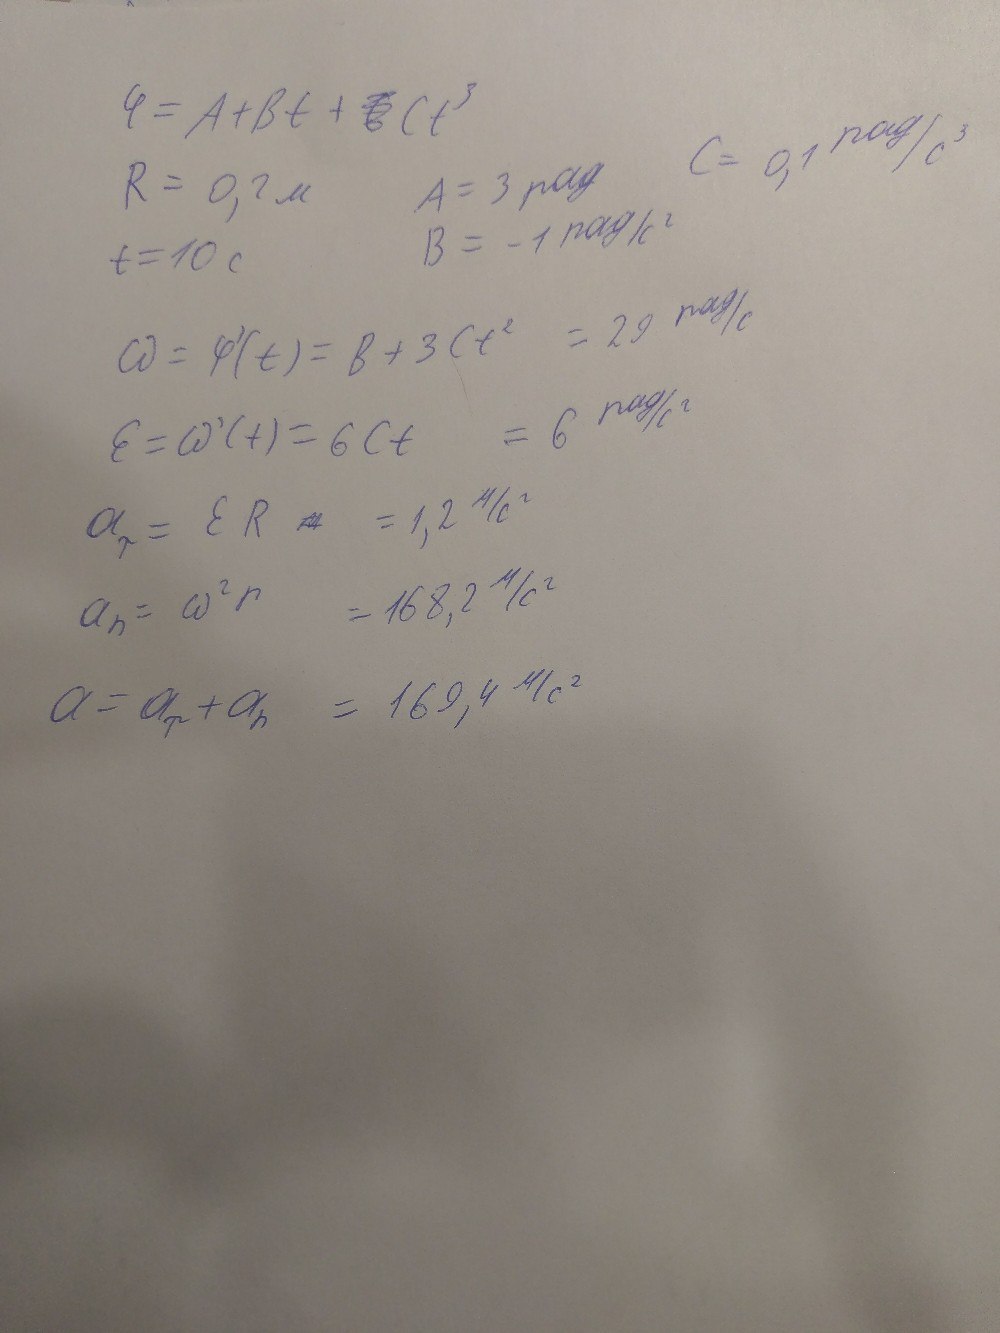 φ = A + Bt + Ct³
R = 0,2 м A = 3 рад C = 0,1 рад/с³
t = 10 с B = -1 рад/с²
ω = φ'(t) = B + 3Ct² = 29 рад/с
ε = ω'(t) = 6Ct = 6 рад/с²
aτ = εR = 1,2 м/с²
an = ω²r = 168,2 м/с²
a = aτ + an = 169,4 м/с²